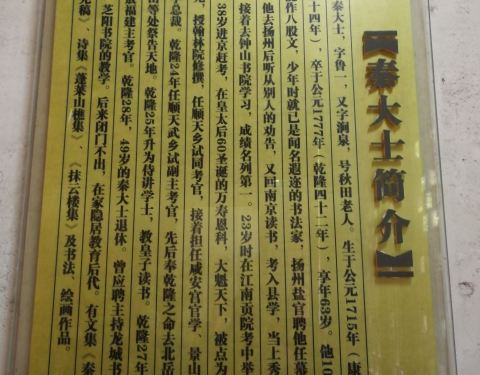 【秦大士简介】
秦大士，字鲁一，又字涧泉，号秋田老人。生于公元1715年（康
十四年），卒于公元1777年（乾隆四十二年），享年63岁。他10
作八股文，少年时就已是闻名遐迩的书法家，扬州盐官聘他任幕
他去扬州后听从别人的劝告，又回南京读书，考入县学，当上秀
接着去钟山书院学习，成绩名列第一。23岁时在江南贡院考中举
38岁进京赶考，在皇太后60圣诞的万寿恩科，大魁天下，被点为
，授翰林院修撰，任顺天乡试同考官，接着担任咸安宫官学、景山
总裁。乾隆24年任顺天武乡试副主考官，先后奉乾隆之命去北岳
山等处祭告天地。乾隆25年升为侍讲学士，教皇子读书。乾隆27年
放福建主考官。乾隆28年，49岁的秦大士退休。曾应聘主持龙城书
芝阳书院的教学。后来闭门不出，在家隐居教育后代。有文集《秦
稿》、诗集《蓬莱山樵集》、《抹云楼集》及书法、绘画作品。